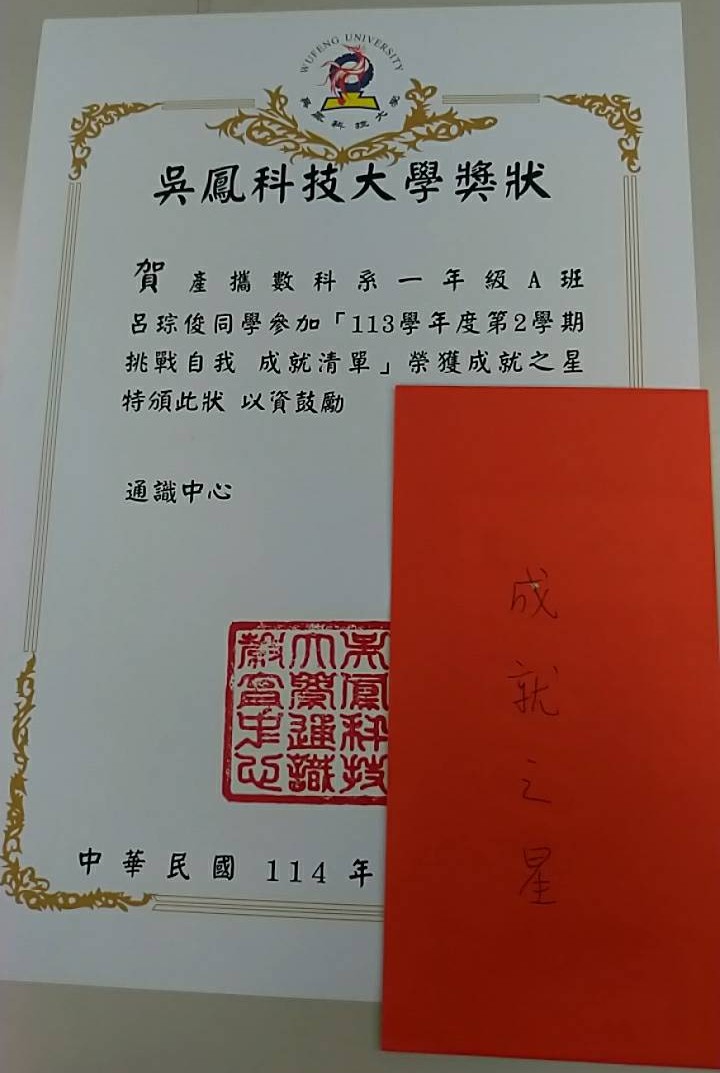 WUFENG UNIVERSITY
吳鳳科技大學
吳鳳科技大學獎狀
賀 產攜數科系一年級A班
呂琮俊同學參加「113學年度第2學期
挑戰自我 成就清單」榮獲成就之星
特頒此狀 以資鼓勵
通識中心
吳鳳科技
大學通識
教育中心
中華民國 114 年
成就之星